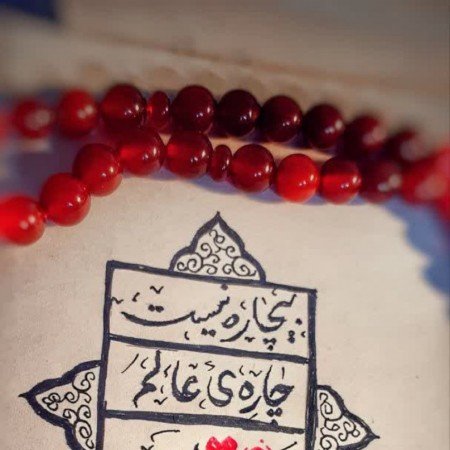 بیچاره نیست
چاره‌ی عالم